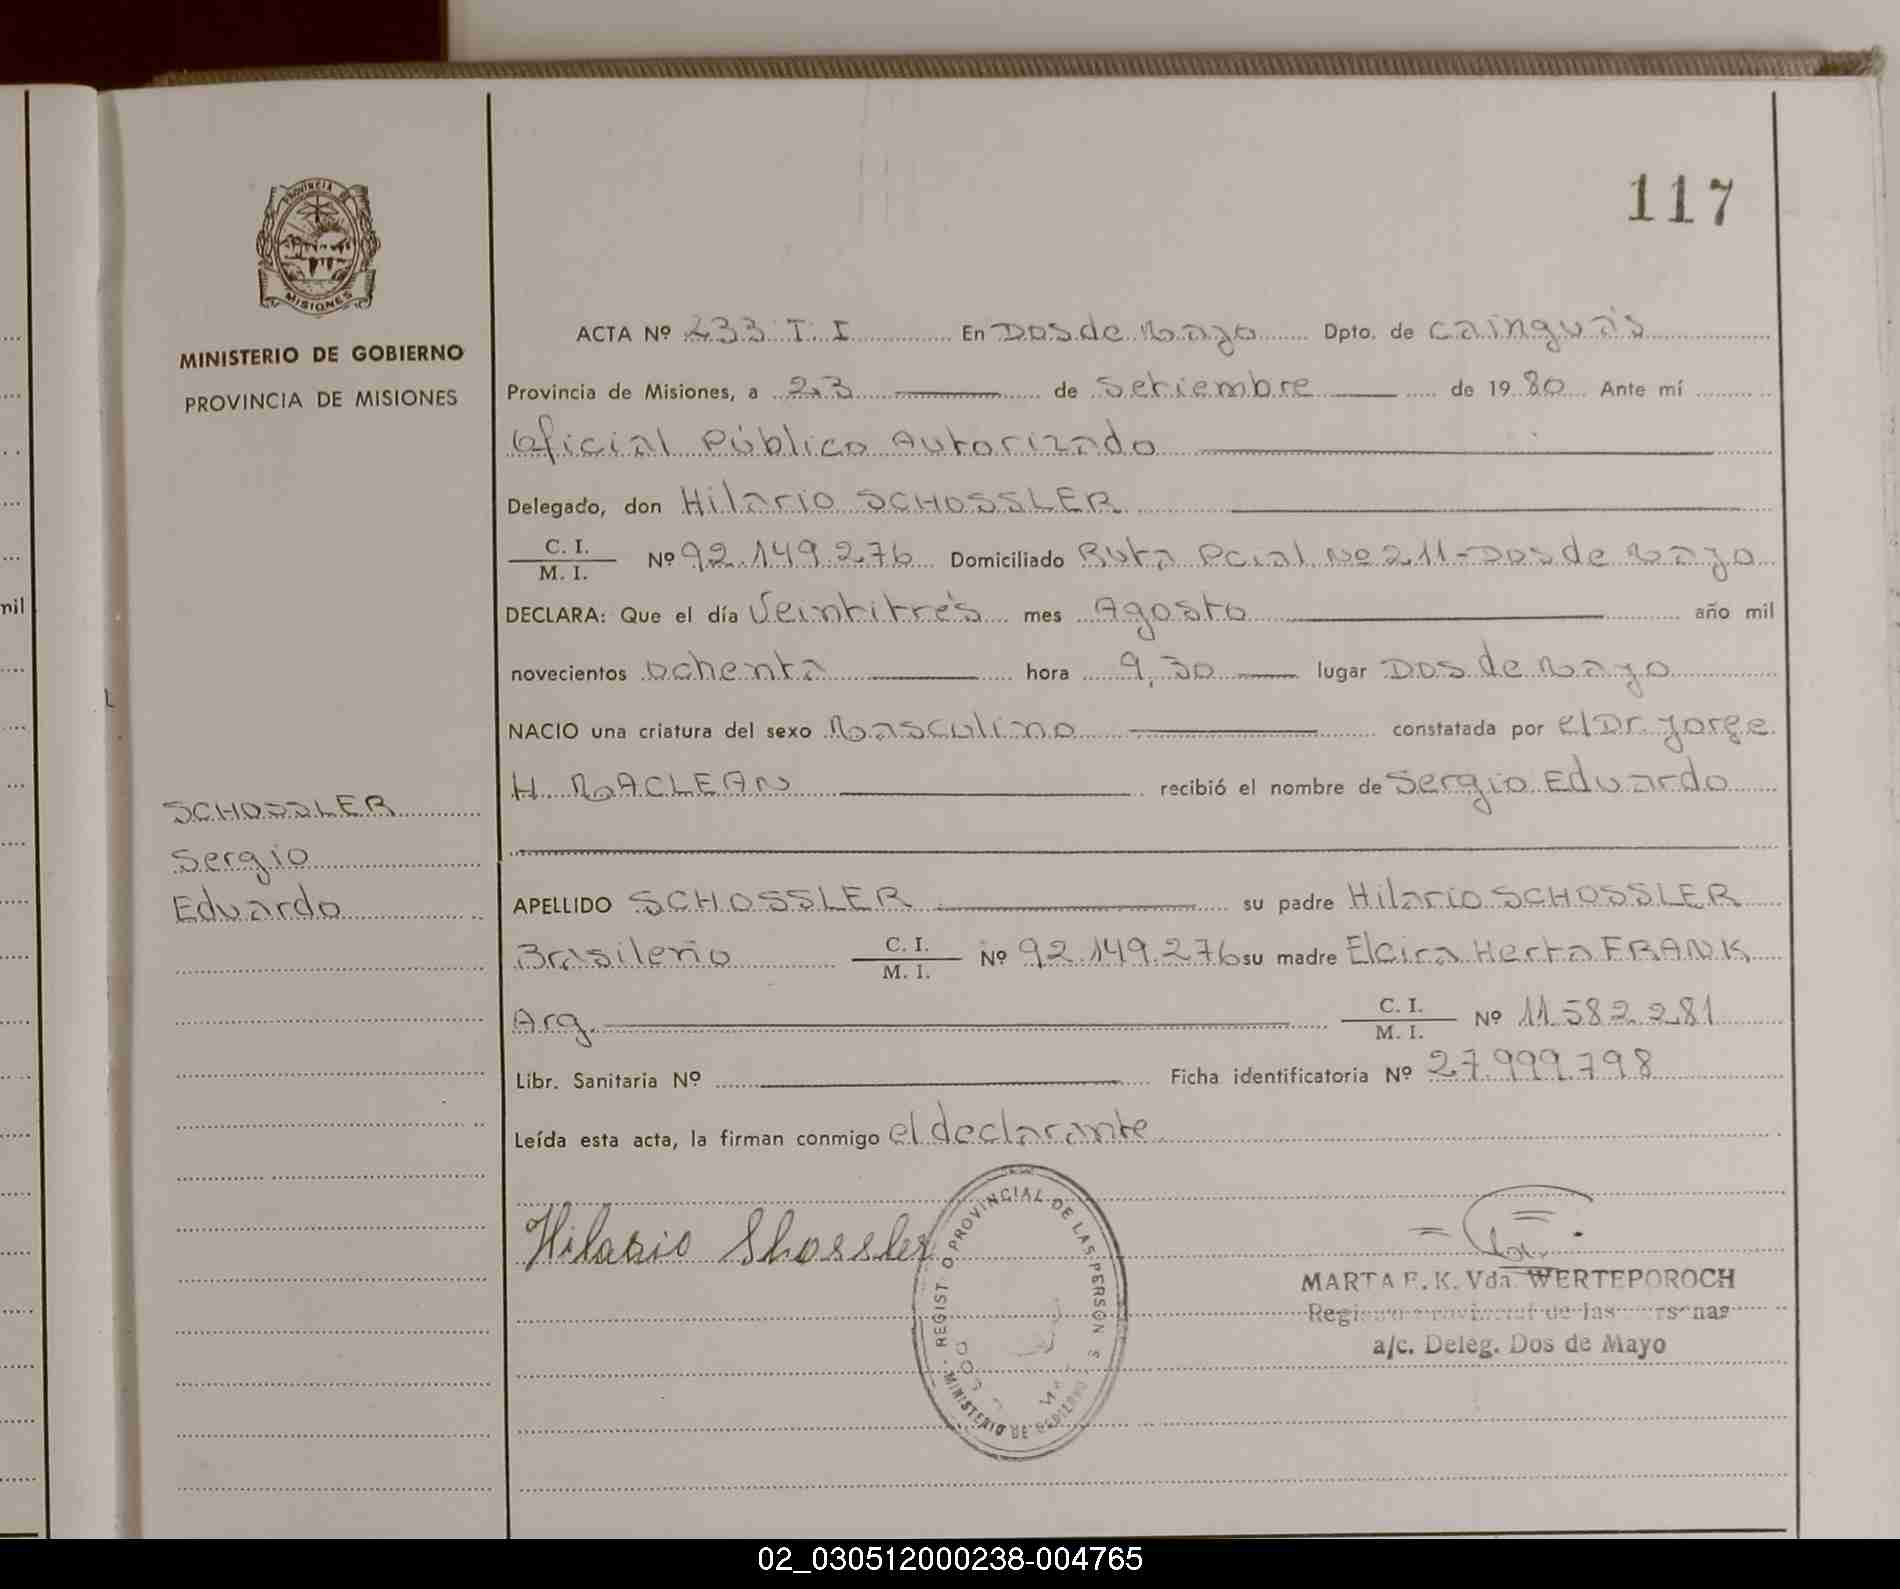 117
PROVINCIA DE
MISIONES
MINISTERIO DE GOBIERNO
PROVINCIA DE MISIONES
SCHOSSLER
Sergio
Eduardo
ACTA Nº 233 T. I En Dos de Mayo Dpto. de Cainguás
Provincia de Misiones, a 23 de Setiembre de 19 80 Ante mí
Oficial Público Autorizado
Delegado, don Hilario SCHOSSLER
C. I. / M. I. Nº 92.149.276 Domiciliado Ruta Pcial Nº 211-Dos de Mayo
DECLARA: Que el día Veintitrés mes Agosto año mil
novecientos ochenta hora 9,30 lugar Dos de Mayo
NACIO una criatura del sexo Masculino constatada por el Dr. Jorge
H. MACLEAN recibió el nombre de Sergio Eduardo
APELLIDO SCHOSSLER su padre Hilario SCHOSSLER
Brasileño C. I. / M. I. Nº 92.149.276 su madre Elcira Herta FRANK
Arg. C. I. / M. I. Nº 11.582.281
Libr. Sanitaria Nº Ficha identificatoria Nº 27.999.798
Leída esta acta, la firman conmigo el declarante
Hilario Shossler
REGISTRO PROVINCIAL DE LAS PERSONAS
MINISTERIO DE GOBIERNO
MARTA E. K. Vda. WERTEPOROCH
Registro Provincial de las Personas
a/c. Deleg. Dos de Mayo
mil
02_030512000238-004765